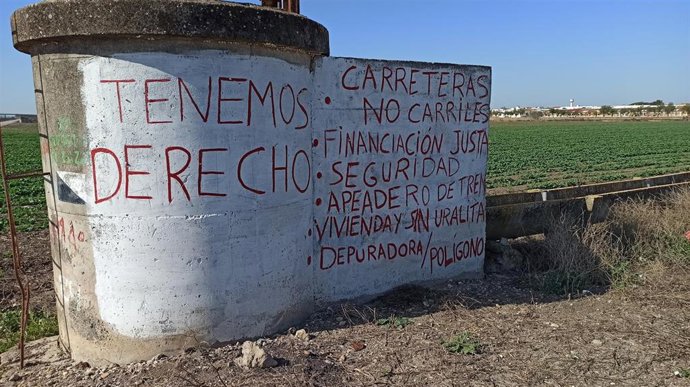 TENEMOS
DERECHO
• CARRETERAS
NO CARRILES
• FINANCIACIÓN JUSTA
• SEGURIDAD
• APEADERO DE TREN
• VIVIENDA Y SIN URALITA
• DEPURADORA/POLÍGONO